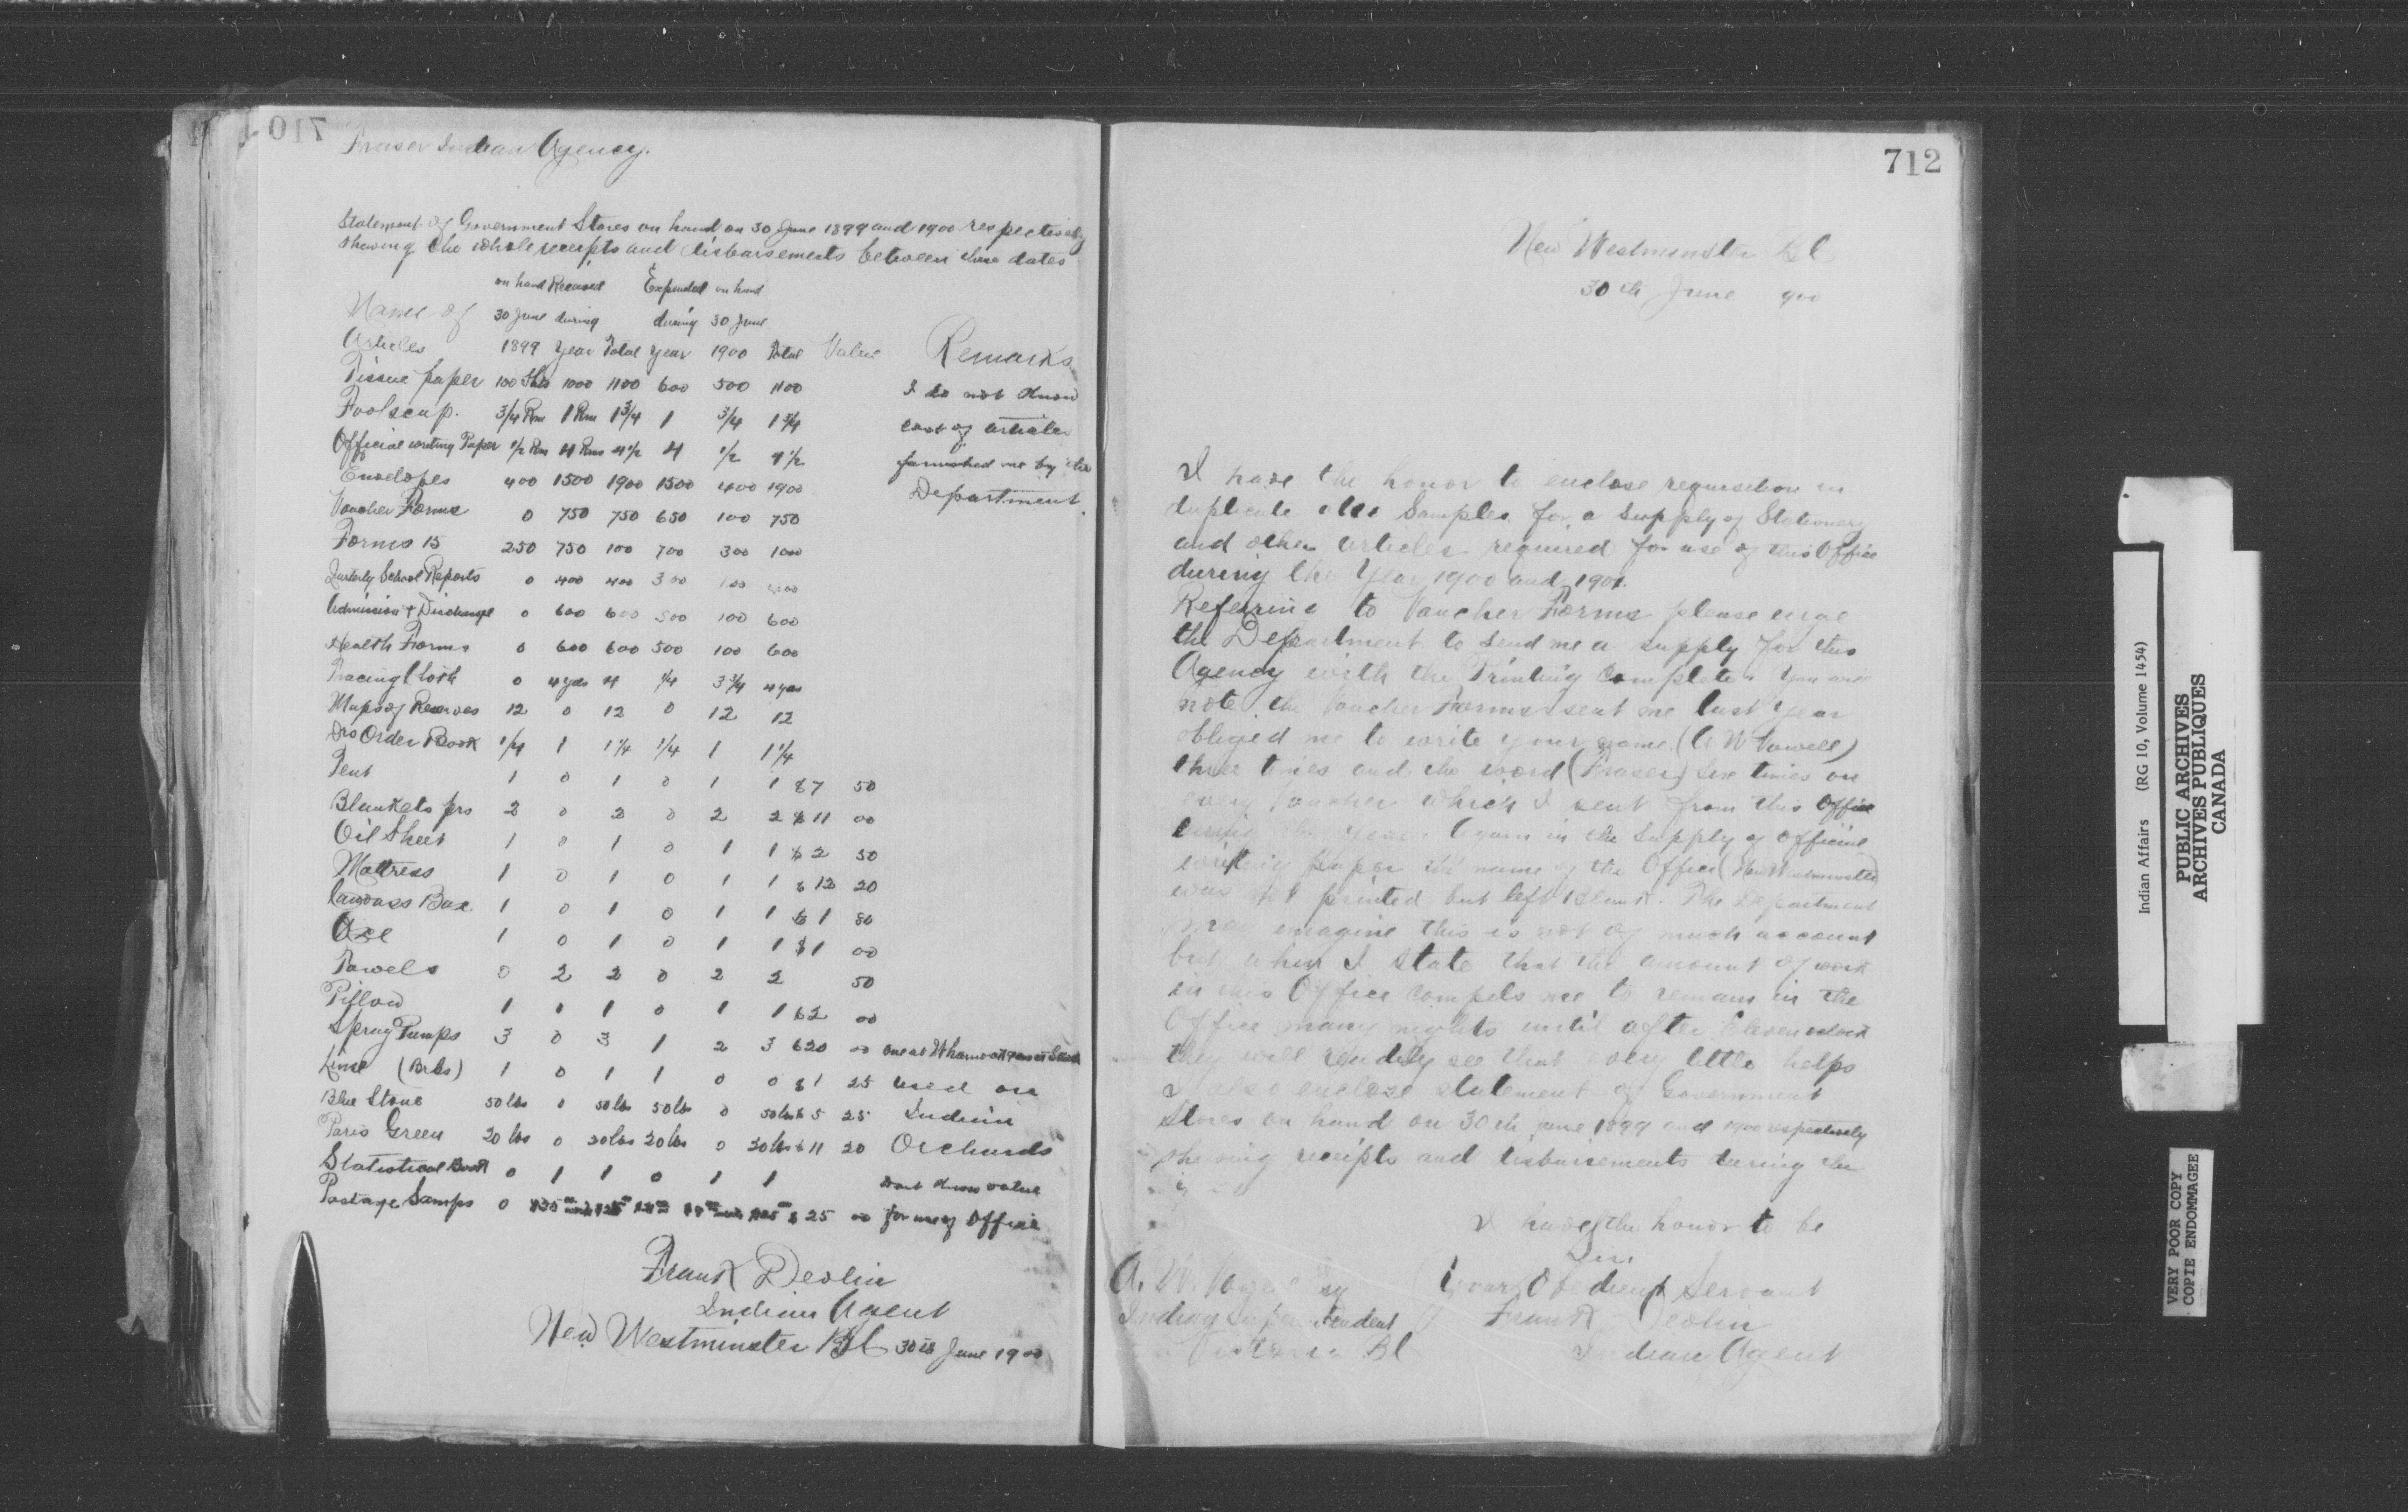 710
Fraser Indian Agency.
Statement of Government Stores on hand on 30 June 1899 and 1900 respectively
shewing the whole receipts and disbursements between those dates
on hand Received Expended on hand
Name of 30 June during during 30 June
Articles 1899 Year Total Year 1900 Total Value Remarks
Tissue paper 100 Shts 1000 1100 600 500 1100 I do not know
Foolscap. 3/4 Rm 1 Rm 1 3/4 1 3/4 1 3/4 cost of articles
Official writing Paper 1/2 Rm 4 Rms 4 1/2 4 1/2 4 1/2 furnished me by the
Envelopes 400 1500 1900 1500 400 1900 Department.
Voucher Forms 0 750 750 650 100 750
Forms 15 250 750 100 700 300 1000
Quarterly School Reports 0 400 400 300 100 400
Admission & Discharge 0 600 600 500 100 600
Health Forms 0 600 600 500 100 600
Tracing Cloth 0 4 yds 4 1/4 3 3/4 4 yds
Maps of Reserves 12 0 12 0 12 12
Drs Order Book 1/4 1 1 1/4 1/4 1 1 1/4
Tent 1 0 1 0 1 1 $7 50
Blankets prs 2 0 2 0 2 2 $11 00
Oil Sheet 1 0 1 0 1 1 $2 50
Mattress 1 0 1 0 1 1 $12 20
Canvass Bag. 1 0 1 0 1 1 $1 80
Axe 1 0 1 0 1 1 $1 00
Towels 0 2 2 0 2 2 50
Pillow 1 1 1 0 1 1 $2 00
Spray Pumps 3 0 3 1 2 3 $20 00 one at
Lime (Brls) 1 0 1 1 0 0 $1 25 used on
Blue Stone 50 lbs 0 50 lbs 50 lbs 0 50 lbs $5 25 Indian
Paris Green 20 lbs 0 20 lbs 20 lbs 0 20 lbs $11 20 Orchards
Statistical Book 0 1 1 0 1 1 dont know value
Postage Stamps 0 $25 00 for use of Office
Frank Devlin
Indian Agent
New Westminster BC 30th June 1900
712
New Westminster BC
30th June 900
I have the honor to enclose requisition in
duplicate also Samples for a Supply of Stationery
and other articles required for use of this Office
during the Year 1900 and 1901.
Referring to Voucher Forms please urge
the Department to send me a supply for this
Agency with the Printing Complete. You will
note the Voucher Forms sent me last Year
obliged me to write your name (A W Vowell)
three times and the word (Fraser) six times on
every Voucher which I sent from this Office
during the year. Again in the Supply of Official
writing paper the name of the Office (New Westminster)
was not printed but left Blank. The Department
may imagine this is not of much account
but when I state that the amount of work
in this Office compels me to remain in the
Office many nights until after Eleven oclock
they will readily see that every little helps
I also enclose statement of Government
Stores on hand on 30th June 1899 and 1900 respectively
shewing receipts and disbursements during the
I have the honor to be
Sir.
A. W. Vowell Esq Your Obedient Servant
Indian Superintendent Frank Devlin
Victoria BC Indian Agent
Indian Affairs (RG 10, Volume 1454)
PUBLIC ARCHIVES
ARCHIVES PUBLIQUES
CANADA
VERY POOR COPY
COPIE ENDOMMAGEE